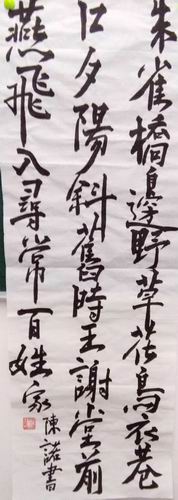 朱雀橋邊野草花烏衣巷
口夕陽斜舊時王謝堂前
燕飛入尋常百姓家
陳諾書